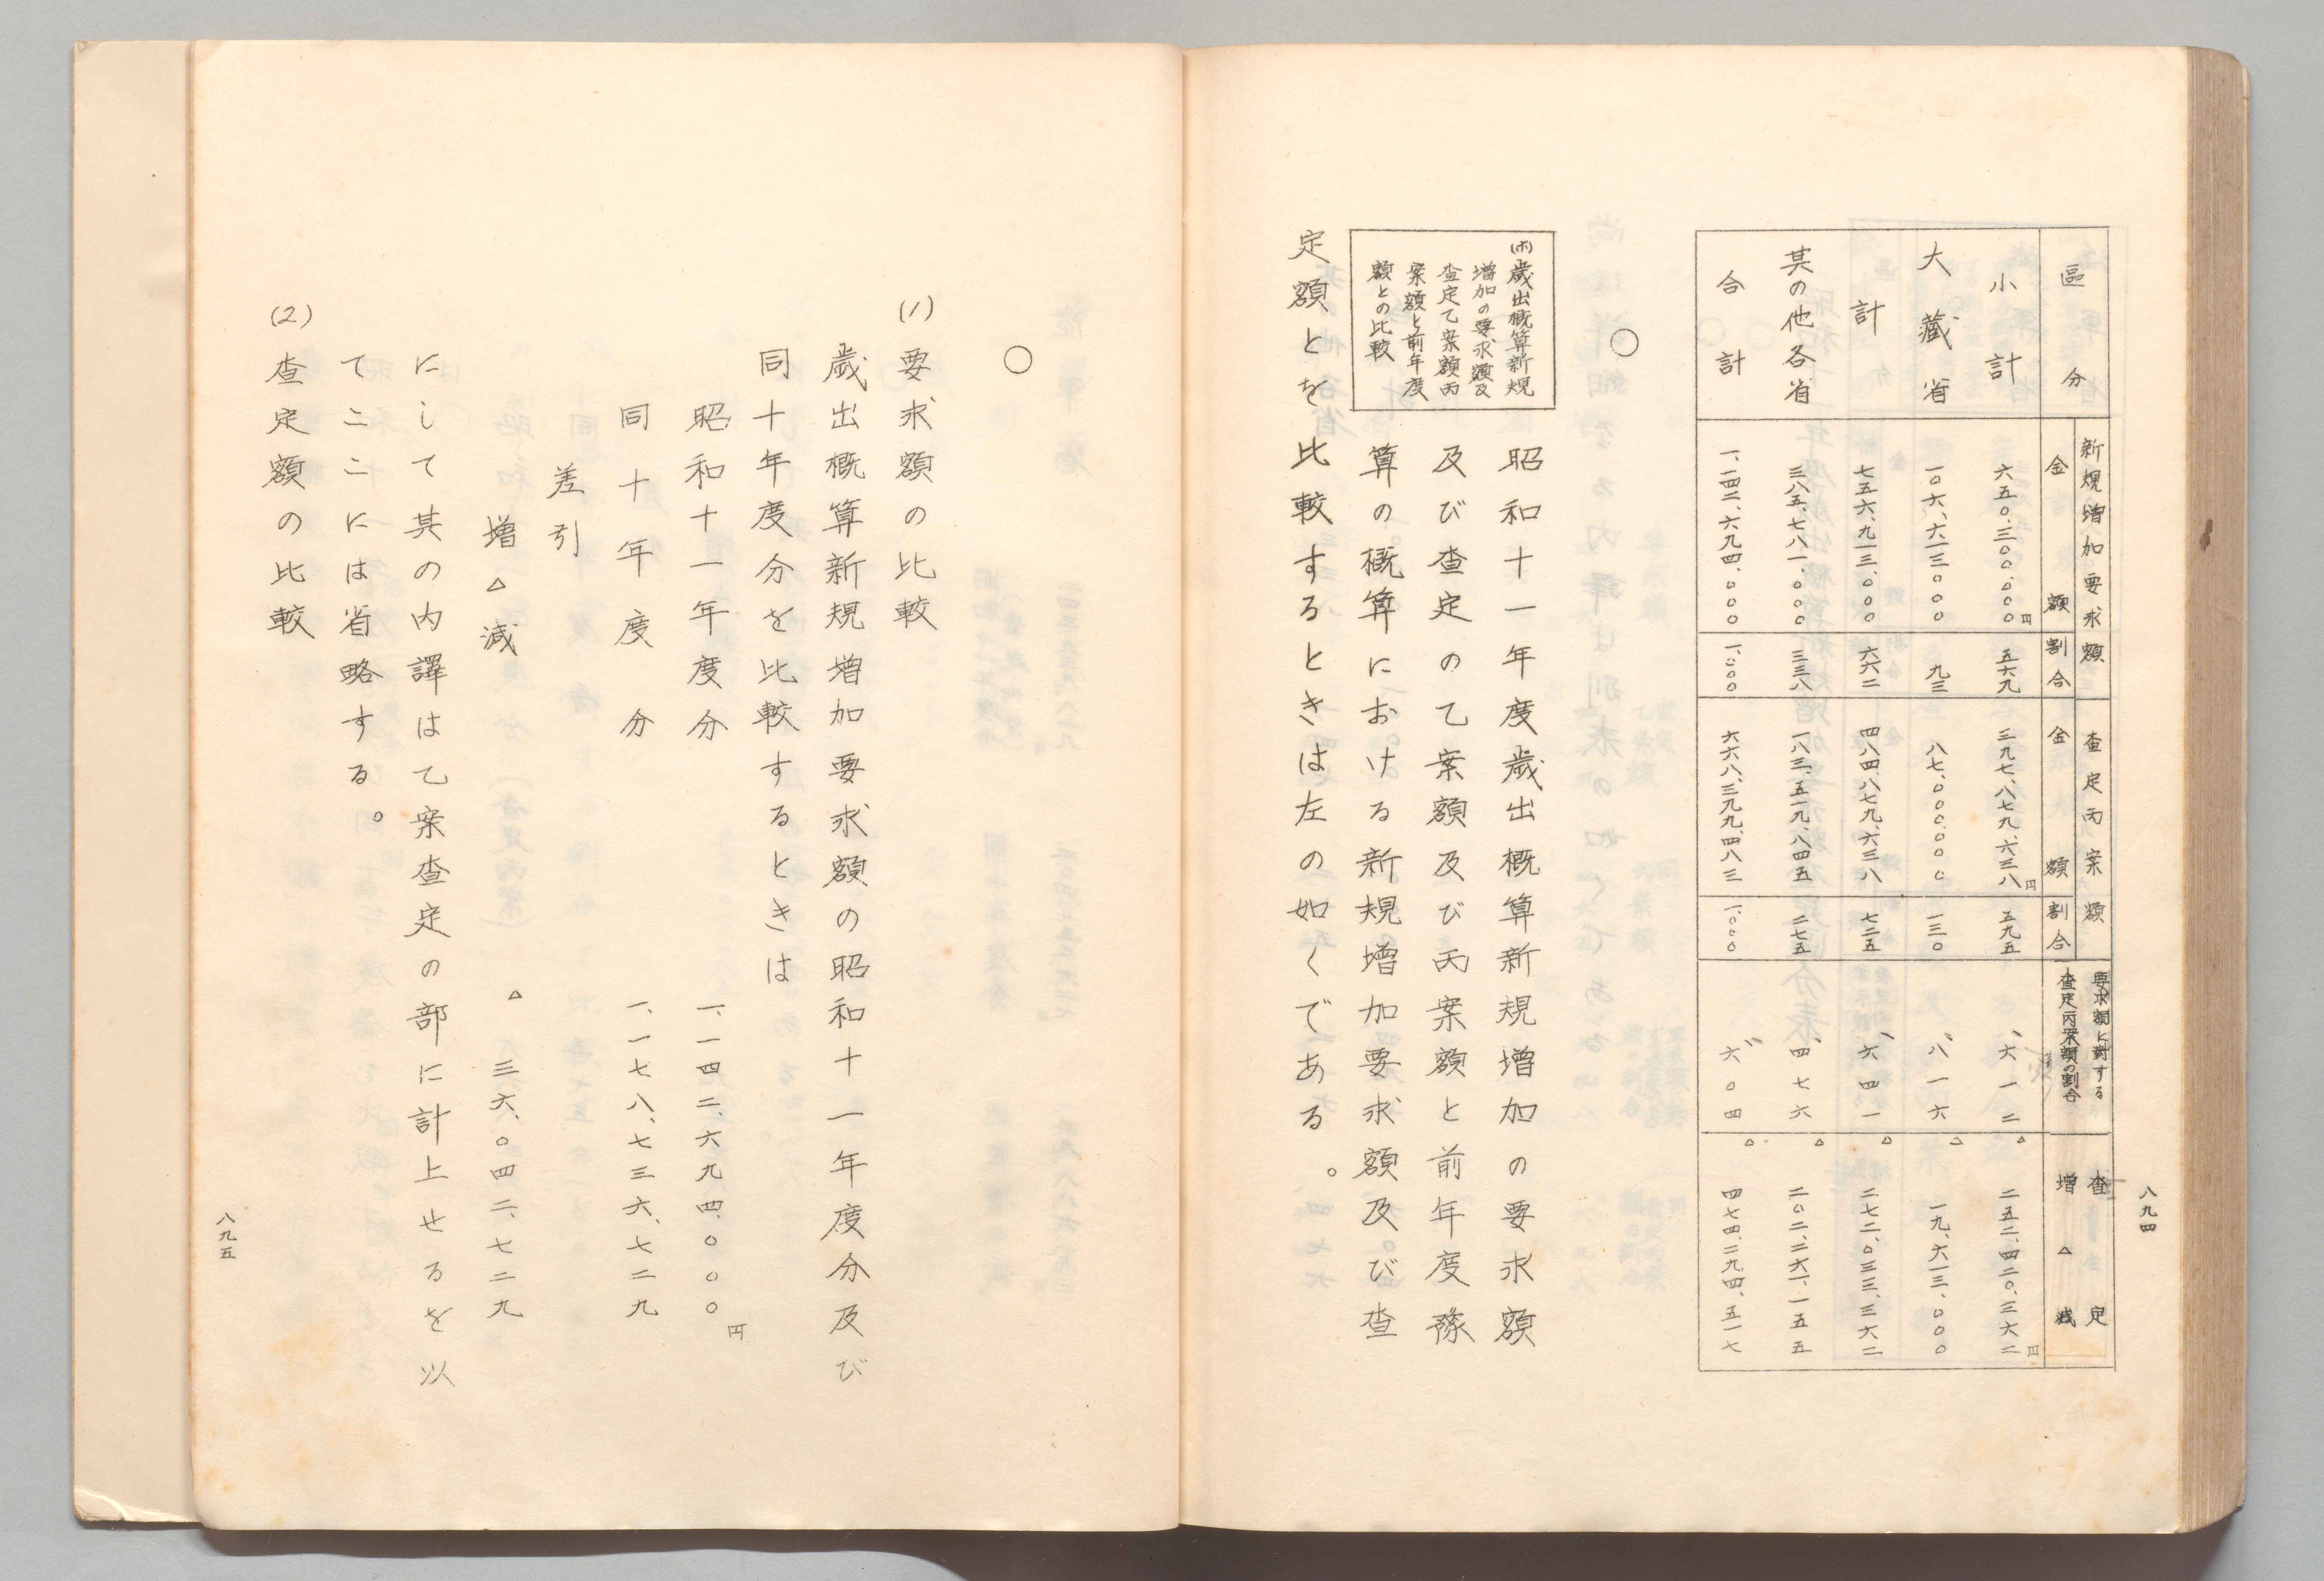 八九四
區分
新規増加要求額
金額
割合
査定丙案額
金額
割合
要求額に對する
査定丙案額の割合
査定
増△減
小計
六五〇、三〇〇、〇〇〇円
五六九
三九七、八七九、六三八円
五九五
六一二
△二五二、四二〇、三六二円
大藏省
一〇六、六一三、〇〇〇
九三
八七、〇〇〇、〇〇〇
一三〇
八一六
△一九、六一三、〇〇〇
計
七五六、九一三、〇〇〇
六六二
四八四、八七九、六三八
七二五
六四一
△二七二、〇三三、三六二
其の他各省
三八五、七八一、〇〇〇
三三八
一八三、五一九、八四五
二七五
四七六
△二〇二、二六一、一五五
合計
一、一四二、六九四、〇〇〇
一、〇〇〇
六六八、三九九、四八三
一、〇〇〇
六〇四
△四七四、二九四、五一七
〇
(ホ)歲出概算新規
増加の要求額及
査定乙案額丙
案額と前年度
額との比較
昭和十一年度歲出概算新規増加の要求額
及び査定の乙案額及び丙案額と前年度豫
算の概算における新規増加要求額及び査
定額とを比較するときは左の如くである。
〇
(1)要求額の比較
歲出概算新規増加要求額の昭和十一年度分及び
同十年度分を比較するときは
昭和十一年度分 一、一四二、六九四、〇〇〇円
同十年度分 一、一七八、七三六、七二九
差引
増△減 △三六、〇四二、七二九
にして其の內譯は乙案査定の部に計上せるを以
てここには省略する。
(2)査定額の比較
八九五